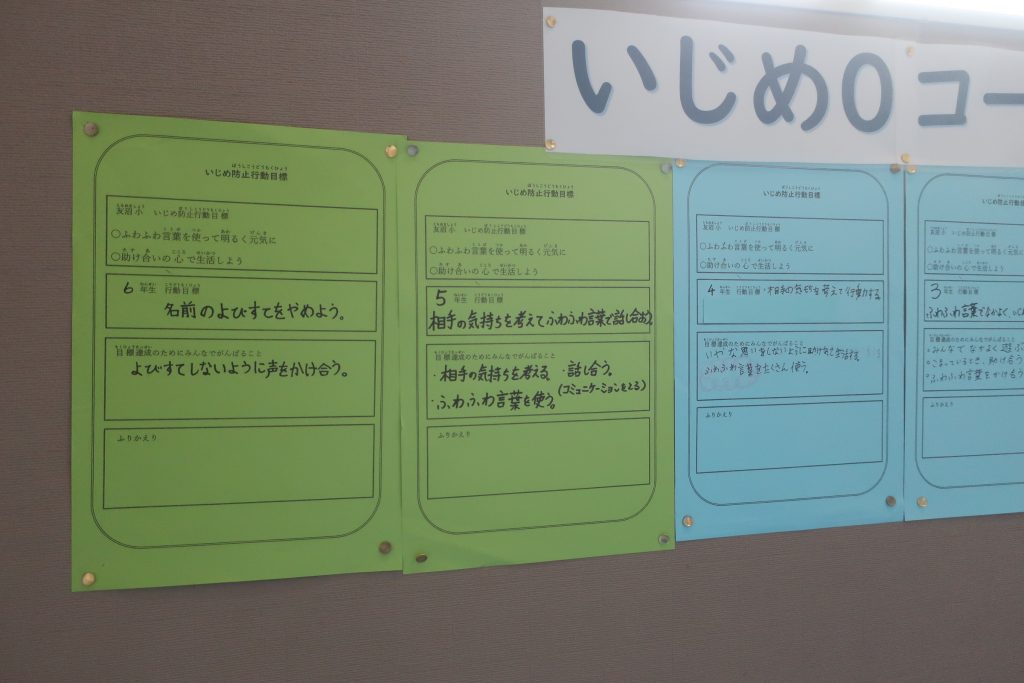 いじめ0コー
ぼうしこうどうもくひょう
いじめ防止行動目標
友沼小 いじめ防止行動目標
○ふわふわ言葉を使って明るく元気に
○助け合いの心で生活しよう
6年生 行動目標
名前のよびすてをやめよう。
目標達成のためにみんなでがんばること
よびすてしないように声をかけ合う。
ふりかえり
ぼうしこうどうもくひょう
いじめ防止行動目標
友沼小 いじめ防止行動目標
○ふわふわ言葉を使って明るく元気に
○助け合いの心で生活しよう
5年生 行動目標
相手の気持ちを考えてふわふわ言葉で話し合おう。
目標達成のためにみんなでがんばること
・相手の気持ちを考える ・話し合う。
(コミュニケーションをとる)
・ふわふわ言葉を使う。
ふりかえり
ぼうしこうどうもくひょう
いじめ防止行動目標
友沼小 いじめ防止行動目標
○ふわふわ言葉を使って明るく元気に
○助け合いの心で生活しよう
4年生 行動目標 ・相手の気持ちを考えて行動する。
目標達成のためにみんなでがんばること
いやな思いをしないように助け合って生活する。
ふわふわ言葉をたくさん使う。
ふりかえり
いじめ防止行動目標
友沼小 いじめ防止行動目標
○ふわふわ言葉を使って明るく元気に
○助け合いの心で生活しよう
3年生 行動目標
ふわふわ言葉でなかよく、
目標達成のためにみんなでがんばること
○みんなでなかよく遊ぶ
○こまっているとき、助け合う
○ふわふわ言葉をかけ合う
ふりかえり